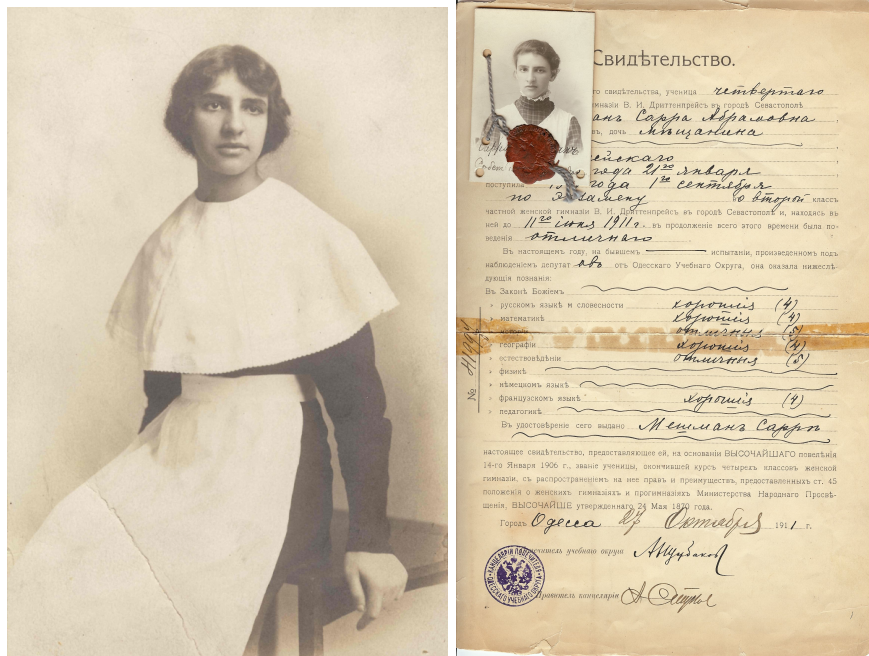 Свидѣтельство.
свидѣтельства, ученица четвертаго
гимназіи В. И. Дриттенпрейсъ въ городѣ Севастополѣ
Сарра Абрамовна
дочь мѣщанина
года 21го января
поступила года 1го сентября
по экзамену во второй классъ
частной женской гимназіи В. И. Дриттенпрейсъ въ городѣ Севастополѣ и, находясь въ
ней до 11го іюня 1911 г., въ продолженіе всего этого времени была по-
веденія отличнаго
Въ настоящемъ году, на бывшемъ испытаніи, произведенномъ подъ
наблюденіемъ депутатовъ отъ Одесскаго Учебнаго Округа, она оказала нижеслѣ-
дующія познанія:
Въ Законѣ Божіемъ
» русскомъ языкѣ и словесности хорошія (4)
» математикѣ хорошія (4)
отличныя (5)
» географіи хорошія (4)
» естествовѣдѣніи отличныя (5)
» физикѣ
» нѣмецкомъ языкѣ
» французскомъ языкѣ хорошія (4)
» педагогикѣ
Въ удостовѣреніе сего выдано Мешманъ Саррѣ
настоящее свидѣтельство, предоставляющее ей, на основаніи ВЫСОЧАЙШАГО повелѣнія
14-го Января 1906 г., званіе ученицы, окончившей курсъ четырехъ классовъ женской
гимназіи, съ распространеніемъ на нее правъ и преимуществъ, предоставленныхъ ст. 45
положенія о женскихъ гимназіяхъ и прогимназіяхъ Министерства Народнаго Просвѣ-
щенія, ВЫСОЧАЙШЕ утвержденнаго 24 Мая 1870 года.
Городъ Одесса 27 Октября 1911 г.
учебнаго округа
Правитель канцеляріи
КАНЦЕЛЯРІИ ПОПЕЧИТЕЛЯ ОДЕССКАГО УЧЕБНАГО ОКРУГА
№